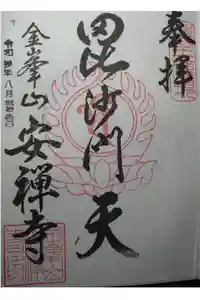 奉拝
毘沙門天
金峯山 安禅寺
令和 年八月 日